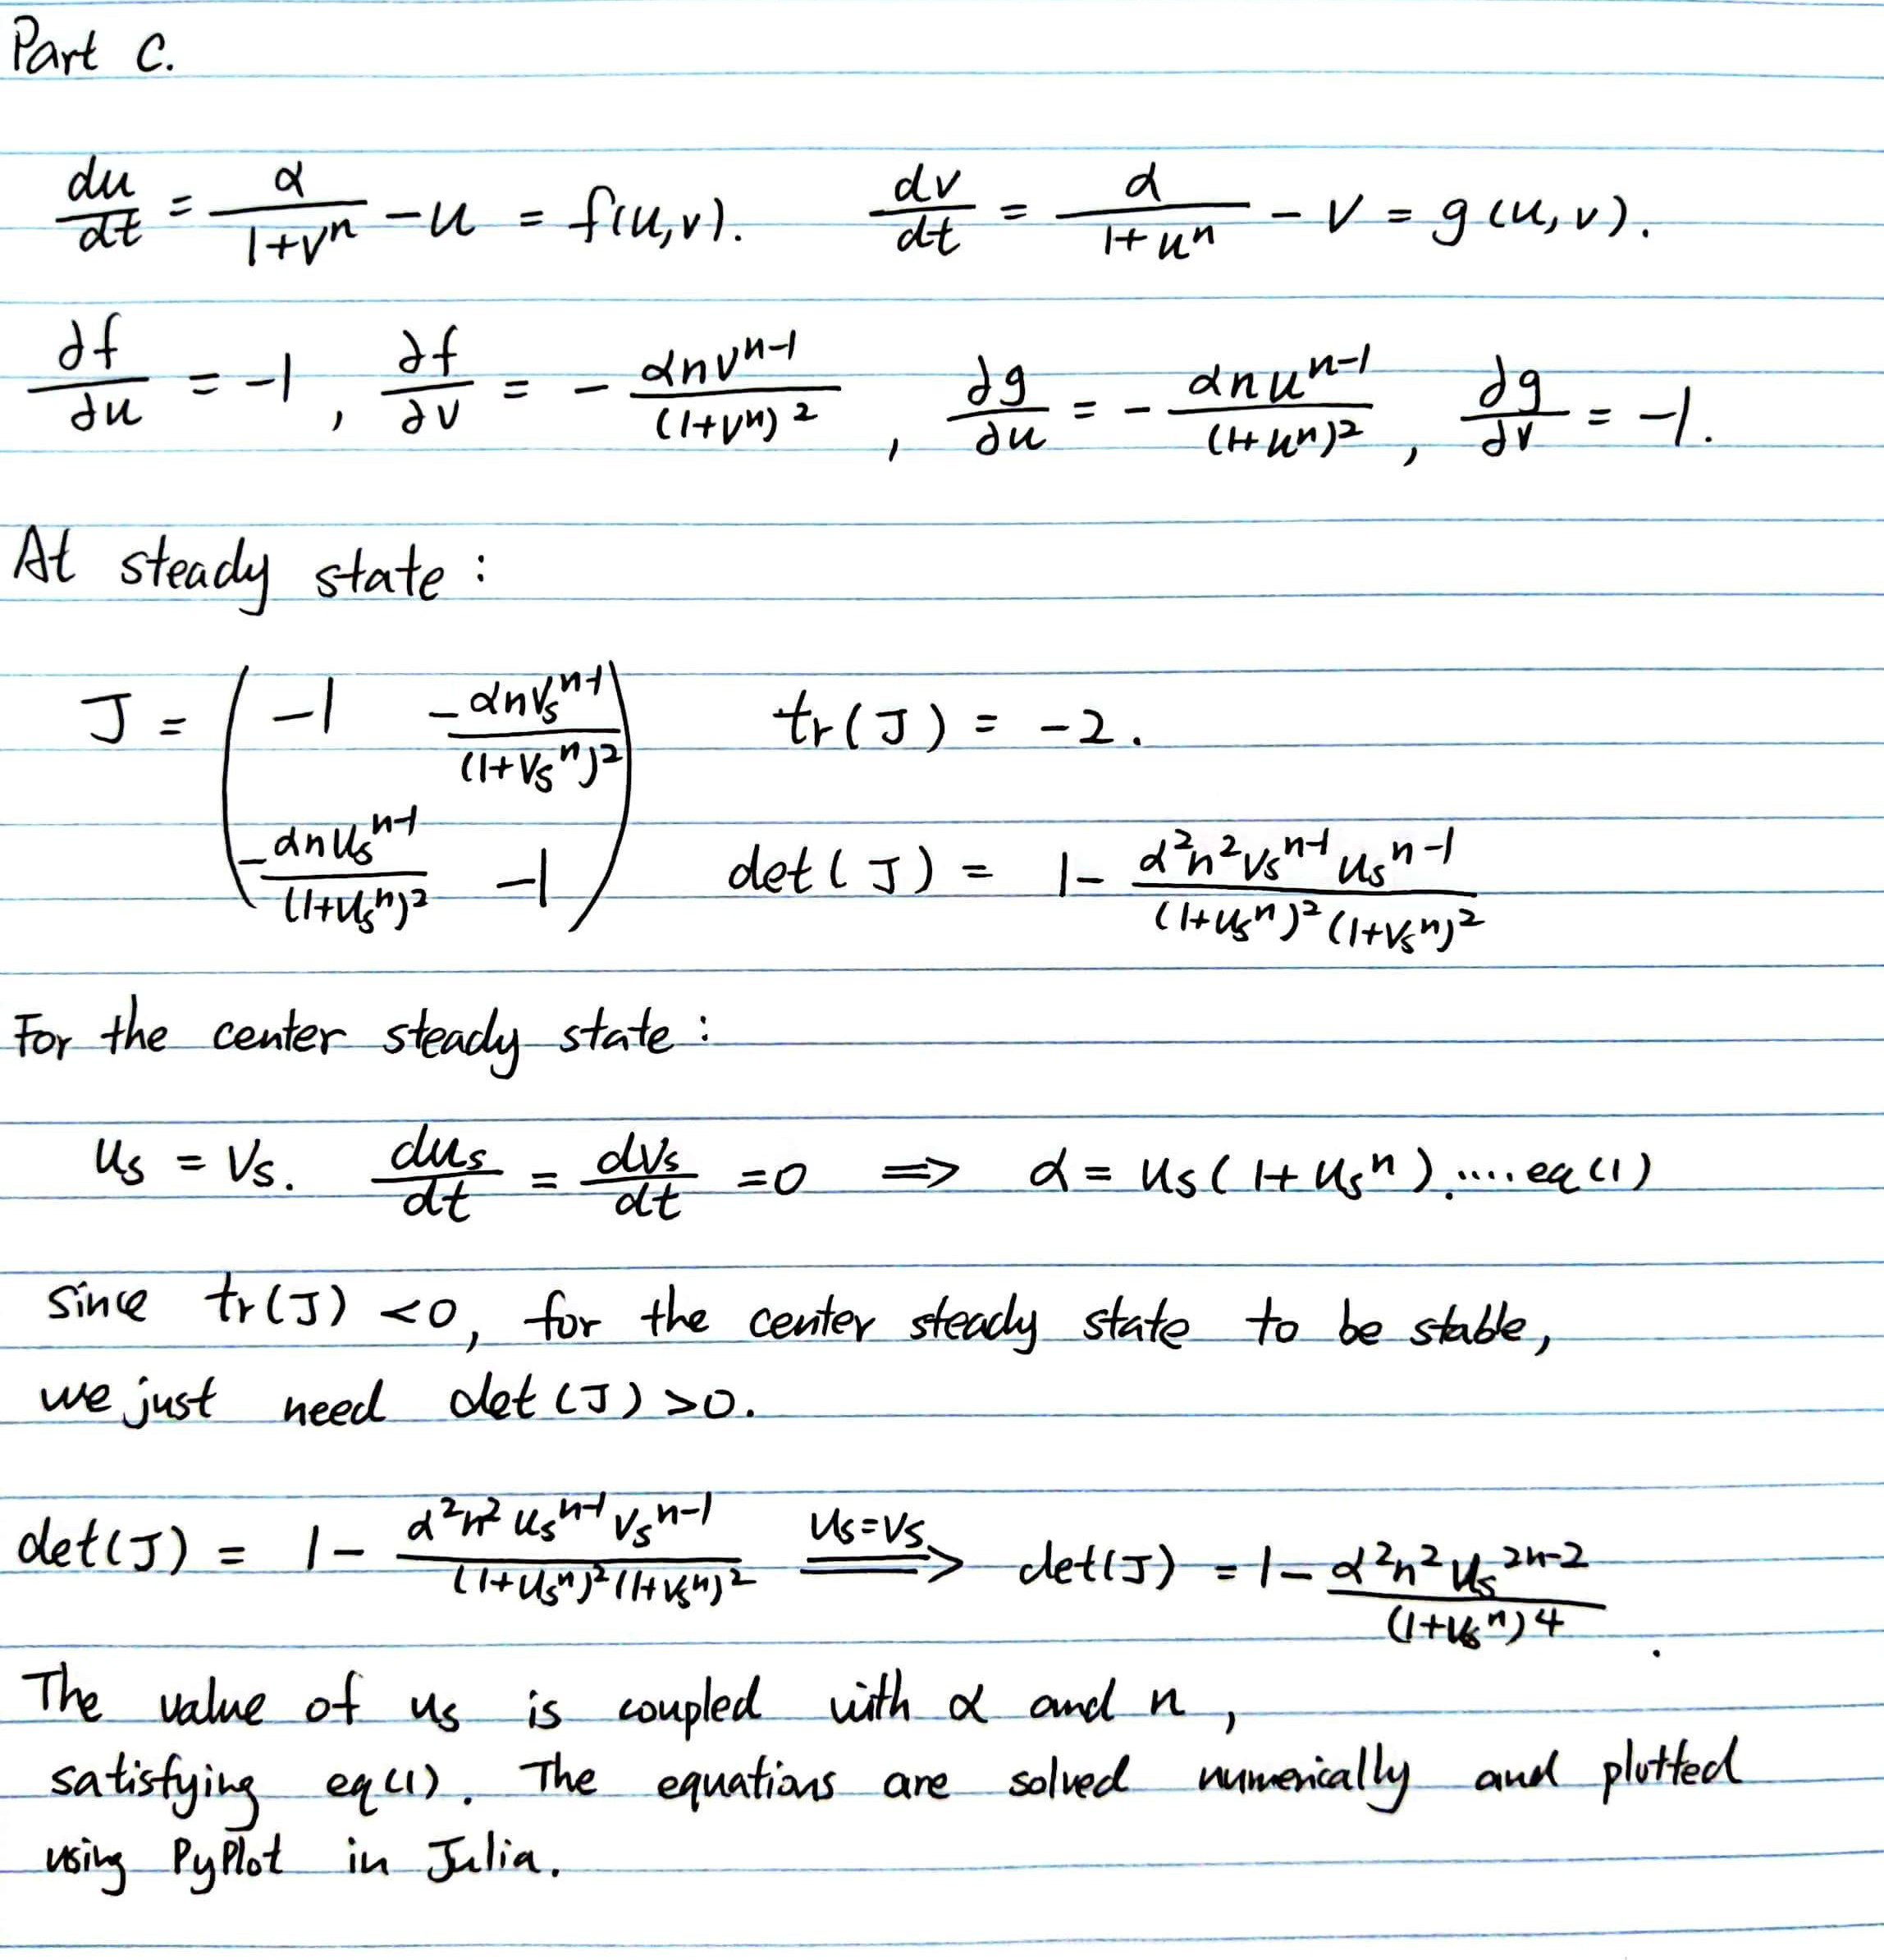 Part C.
du/dt = α/(1+vⁿ) - u = f(u,v). dv/dt = α/(1+uⁿ) - v = g(u,v).
∂f/∂u = -1, ∂f/∂v = - αnvⁿ⁻¹/(1+vⁿ)², ∂g/∂u = - αnuⁿ⁻¹/(1+uⁿ)², ∂g/∂v = -1.
At steady state :
J = ( -1  -αnvₛⁿ⁻¹/(1+vₛⁿ)² ; -αnuₛⁿ⁻¹/(1+uₛⁿ)²  -1 ) tr(J) = -2.
det(J) = 1- α²n²vₛⁿ⁻¹uₛⁿ⁻¹/((1+uₛⁿ)²(1+vₛⁿ)²)
For the center steady state :
uₛ = vₛ. duₛ/dt = dvₛ/dt =0 ⇒ α = uₛ(1+uₛⁿ).....eq(1)
Since tr(J) <0, for the center steady state to be stable,
we just need det(J) >0.
det(J) = 1- α²n²uₛⁿ⁻¹vₛⁿ⁻¹/((1+uₛⁿ)²(1+vₛⁿ)²) uₛ=vₛ ⇒ det(J) = 1- α²n²uₛ²ⁿ⁻²/(1+uₛⁿ)⁴.
The value of uₛ is coupled with α and n,
satisfying eq(1). The equations are solved numerically and plotted
using PyPlot in Julia.